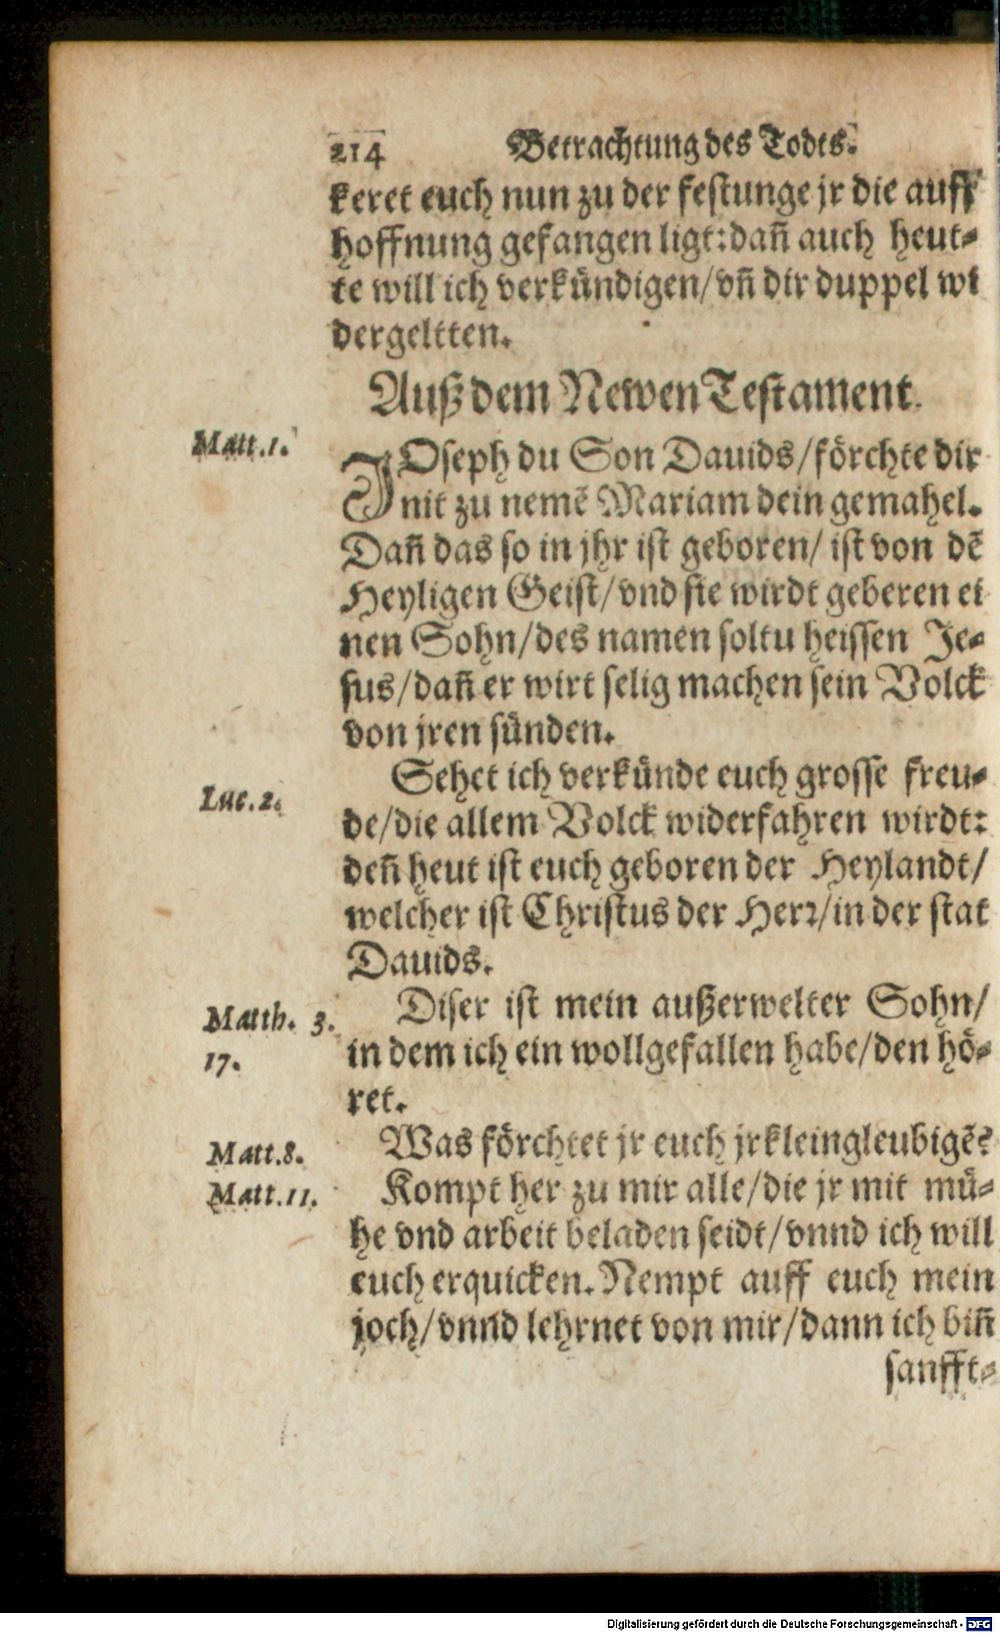 214 Betrachtung des Todts.
keret euch nun zu der festunge jr die auff
hoffnung gefangen ligt: dañ auch heut-
te will ich verkündigen/ vñ dir duppel wi
dergeltten.
Auß dem Newen Testament.
Matt.1.
JOseph du Son Dauids/ förchte dir
nit zu nemẽ Mariam dein gemahel.
Dañ das so in jhr ist geboren/ ist von dẽ
Heyligen Geist/ vnd sie wirdt geberen ei
nen Sohn/ des namen soltu heissen Je-
sus/ dañ er wirt selig machen sein Volck
von jren sünden.
Luc.2.
Sehet ich verkünde euch grosse freu-
de/ die allem Volck widerfahren wirdt:
deñ heut ist euch geboren der Heylandt/
welcher ist Christus der Herr/ in der stat
Dauids.
Matth. 3.
17.
Diser ist mein außerwelter Sohn/
in dem ich ein wollgefallen habe/ den hö-
ret.
Matt.8.
Was förchtet jr euch jr kleingleubigẽ?
Matt.11.
Kompt her zu mir alle/ die jr mit mü-
he vnd arbeit beladen seidt/ vnnd ich will
euch erquicken. Nempt auff euch mein
joch/ vnnd lehrnet von mir/ dann ich biñ
sanfft-
Digitalisierung gefördert durch die Deutsche Forschungsgemeinschaft - DFG